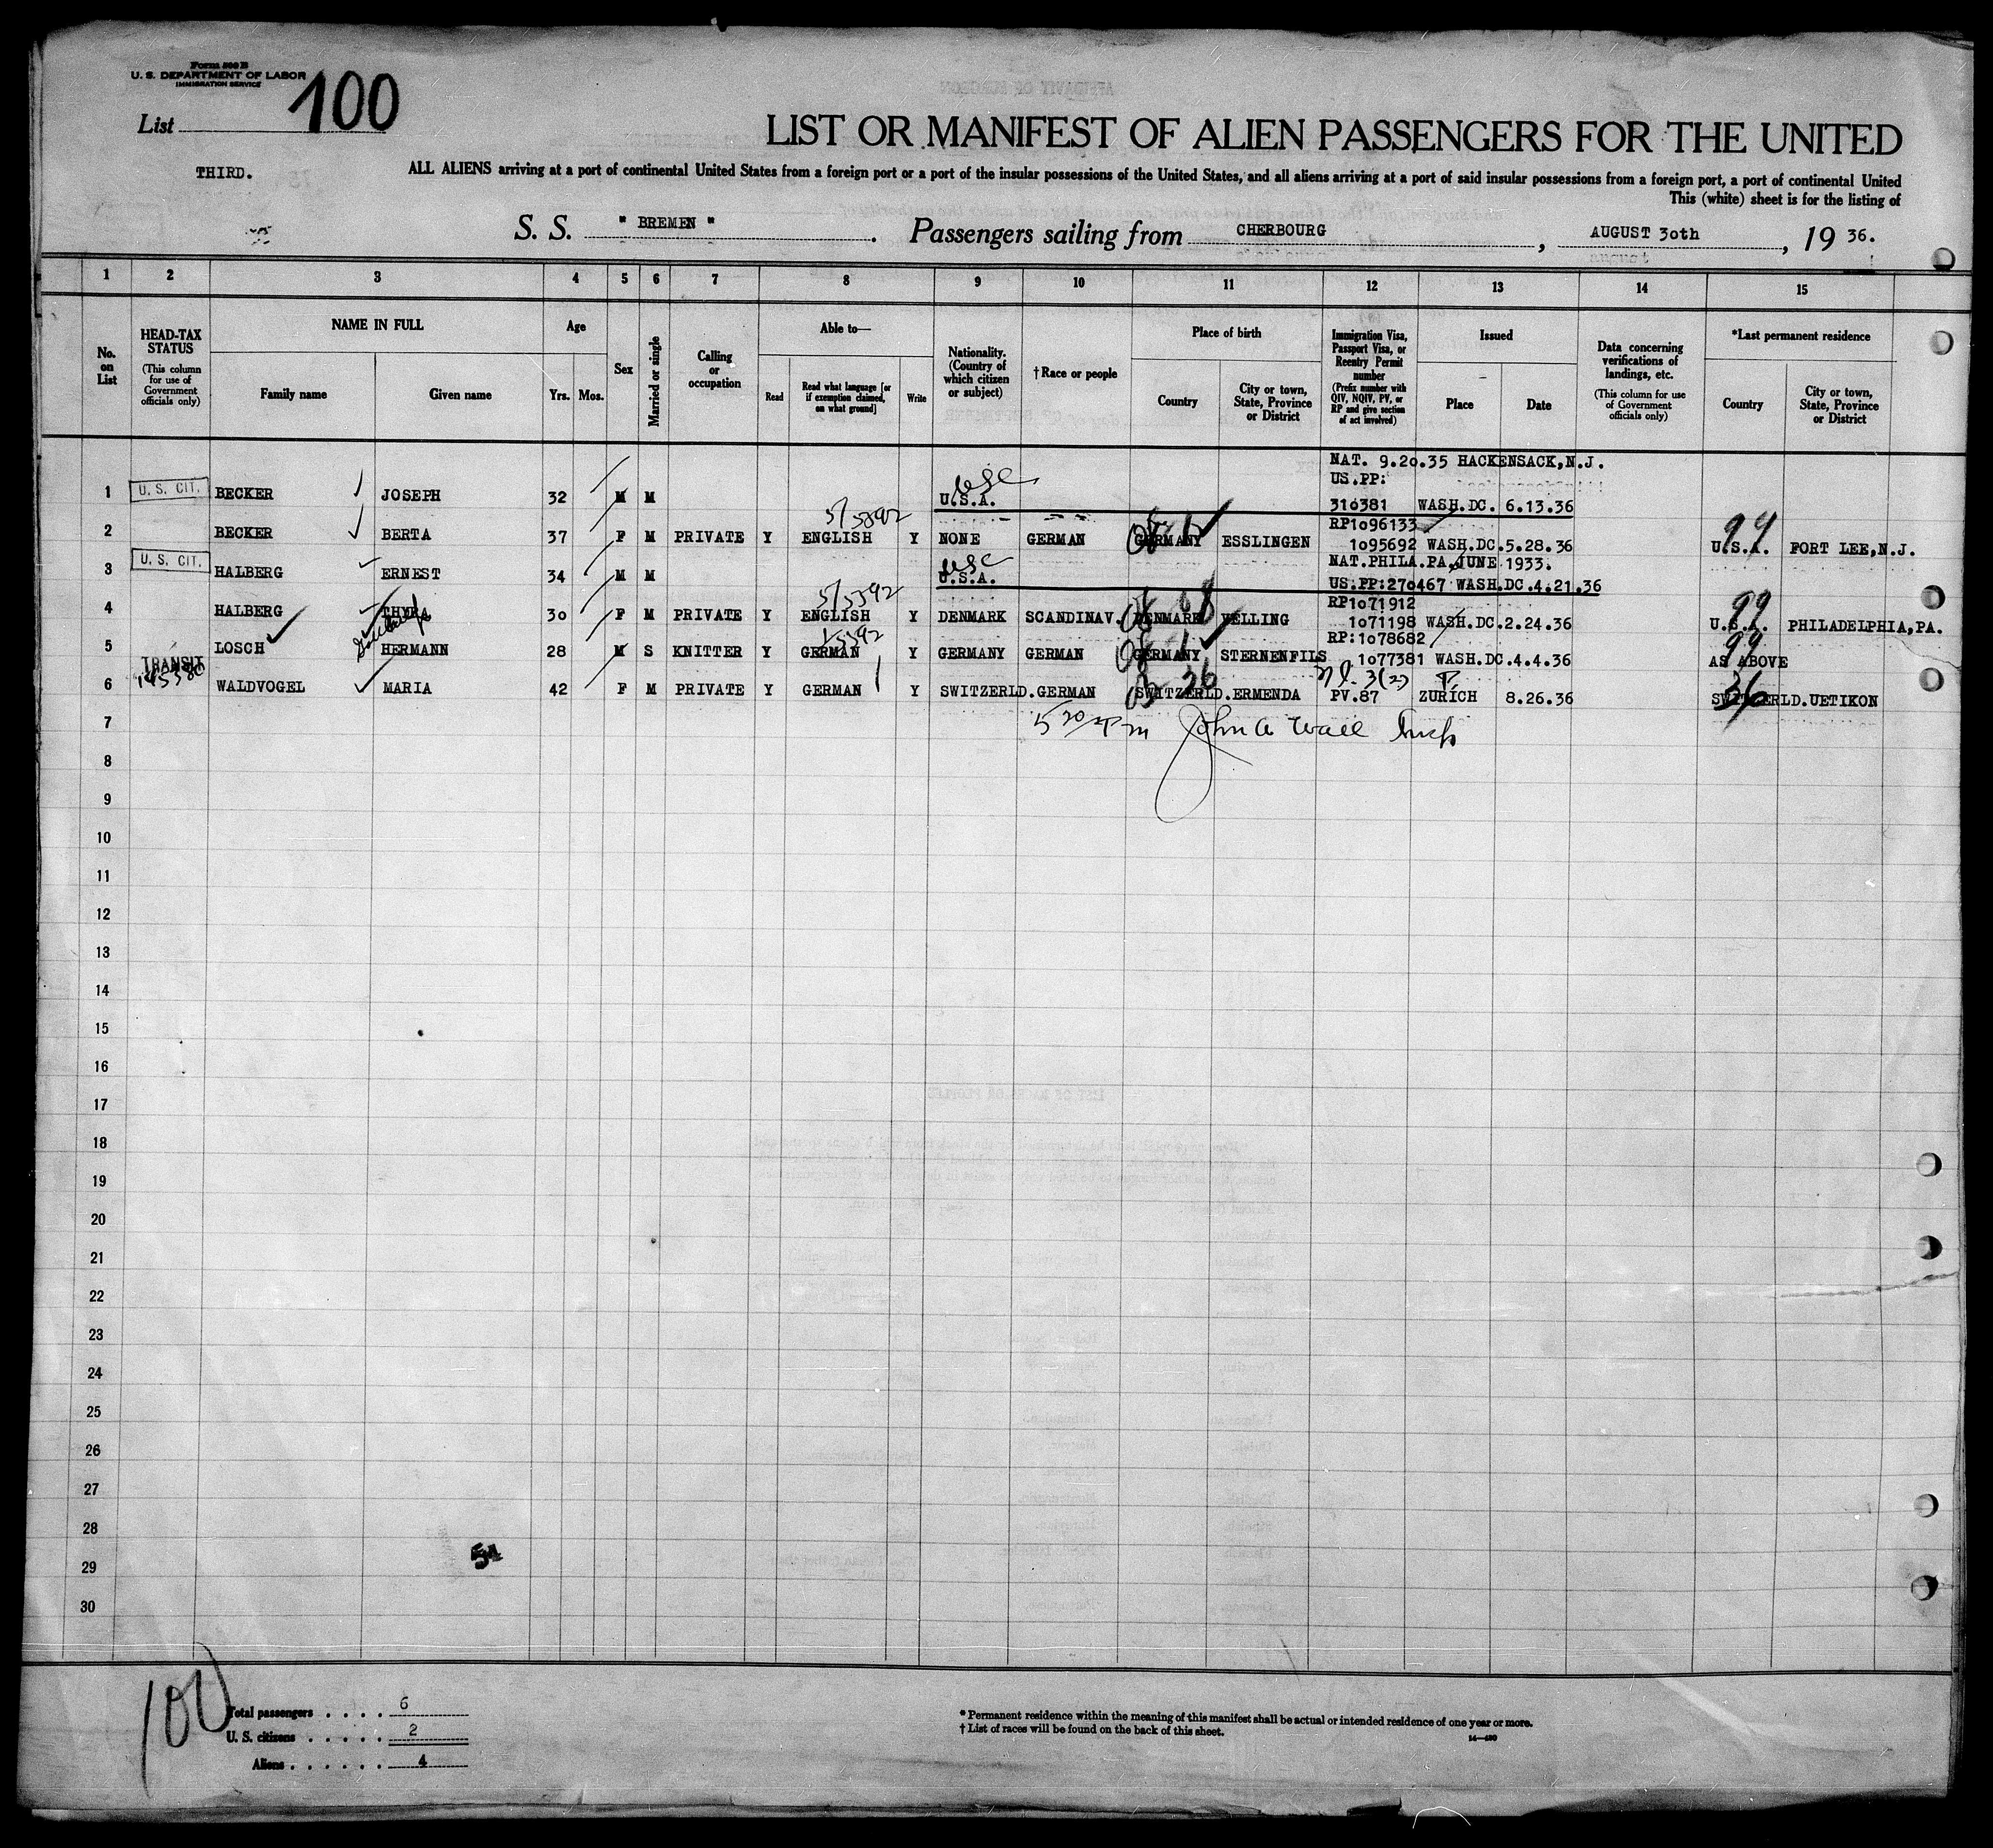 Form 500 B
U. S. DEPARTMENT OF LABOR
IMMIGRATION SERVICE
List 100
LIST OR MANIFEST OF ALIEN PASSENGERS FOR THE UNITED
THIRD.
ALL ALIENS arriving at a port of continental United States from a foreign port or a port of the insular possessions of the United States, and all aliens arriving at a port of said insular possessions from a foreign port, a port of continental United
This (white) sheet is for the listing of
S. S. "BREMEN". Passengers sailing from CHERBOURG, AUGUST 30th, 19 36.
1 2 3 4 5 6 7 8 9 10 11 12 13 14 15
No. on List
HEAD-TAX STATUS (This column for use of Government officials only)
NAME IN FULL
Family name Given name
Age
Yrs. Mos.
Sex
Married or single
Calling or occupation
Able to—
Read Read what language [or if exemption claimed, on what ground] Write
Nationality. (Country of which citizen or subject)
†Race or people
Place of birth
Country City or town, State, Province or District
Immigration Visa, Passport Visa, or Reentry Permit number (Prefix number with QIV, NQIV, PV, or RP and give section of act involved)
Issued
Place Date
Data concerning verifications of landings, etc. (This column for use of Government officials only)
*Last permanent residence
Country City or town, State, Province or District
NAT. 9.20.35 HACKENSACK,N.J.
US.PP:
usc
1 U. S. CIT. BECKER JOSEPH 32 M M U.S.A. 310381 WASH.DC. 6.13.36
RP1096133
2 BECKER BERTA 37 F M PRIVATE Y ENGLISH Y NONE GERMAN GERMANY ESSLINGEN 1095692 WASH.DC.5.28.36 U.S.A. FORT LEE,N.J.
99
usc
NAT.PHILA.PA.JUNE 1933.
3 U. S. CIT. HALBERG ERNEST 34 M M U.S.A. US.PP:270467 WASH.DC.4.21.36
RP1071912
4 HALBERG THYRA 30 F M PRIVATE Y ENGLISH Y DENMARK SCANDINAV. DENMARK VELLING 1071198 WASH.DC.2.24.36 U.S.A. PHILADELPHIA,PA.
99
RP:1078682
5 LOSCH HERMANN 28 M S KNITTER Y GERMAN Y GERMANY GERMAN GERMANY STERNENFILS 1077381 WASH.DC.4.4.36 AS ABOVE
99
TRANSIT
145380
6 WALDVOGEL MARIA 42 F M PRIVATE Y GERMAN Y SWITZERLD.GERMAN SWITZERLD.ERMENDA PV.87 ZURICH 8.26.36 SWITZERLD.UETIKON
36
7
John A Wall
8
9
10
11
12
13
14
15
16
17
18
19
20
21
22
23
24
25
26
27
28
29
30
54
100
Total passengers . . . . 6
U. S. citizens . . . . . 2
Aliens . . . . . . 4
* Permanent residence within the meaning of this manifest shall be actual or intended residence of one year or more.
† List of races will be found on the back of this sheet.